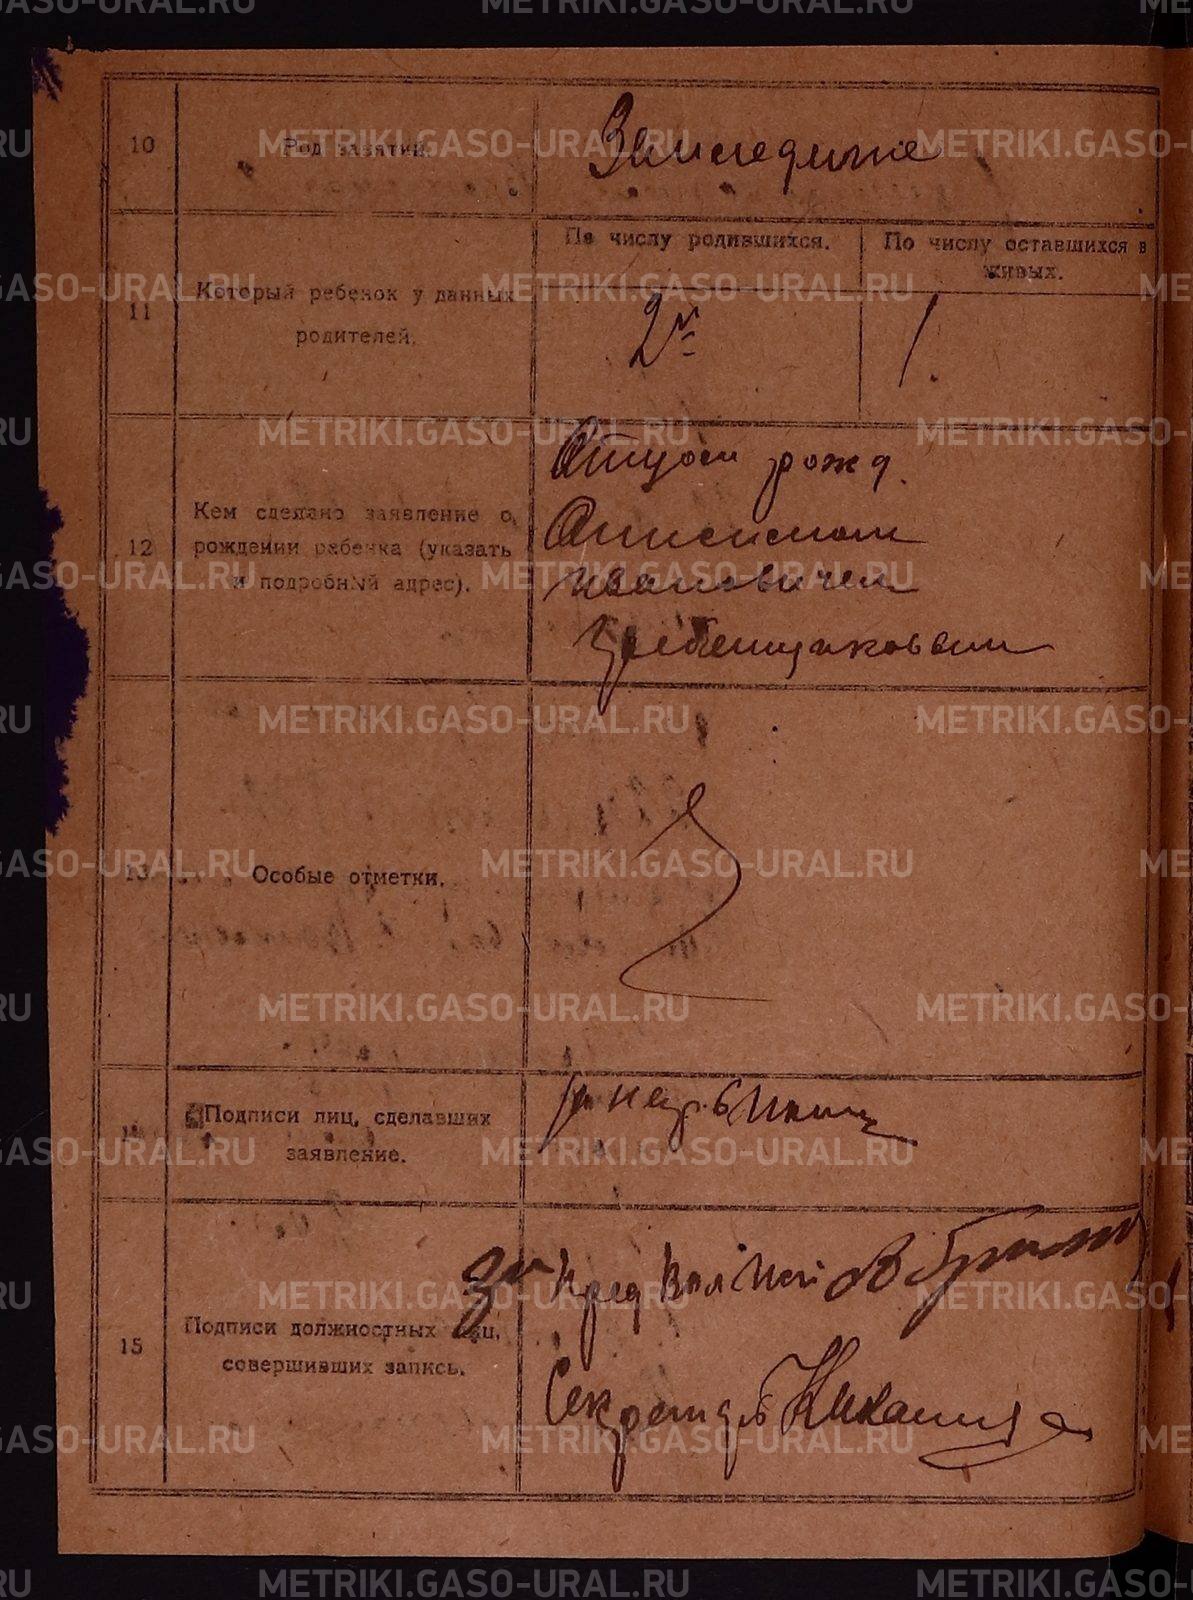 10
Род занятий.
Земледелие
11
Который ребенок у данных
родителей.
По числу родившихся.
По числу оставшихся в
живых.
2й
1
12
Кем сделано заявление о
рождении ребенка (указать
и подробный адрес).
Отцом рожд.
Анисимом
Ивановичем
Гребенщиковым
13
Особые отметки.
14
Подписи лиц, сделавших
заявление.
15
Подписи должностных лиц,
совершивших запись.
За Пред
Секретарь
METRIKI.GASO-URAL.RU